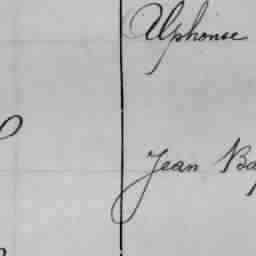 Alphonse
Jean